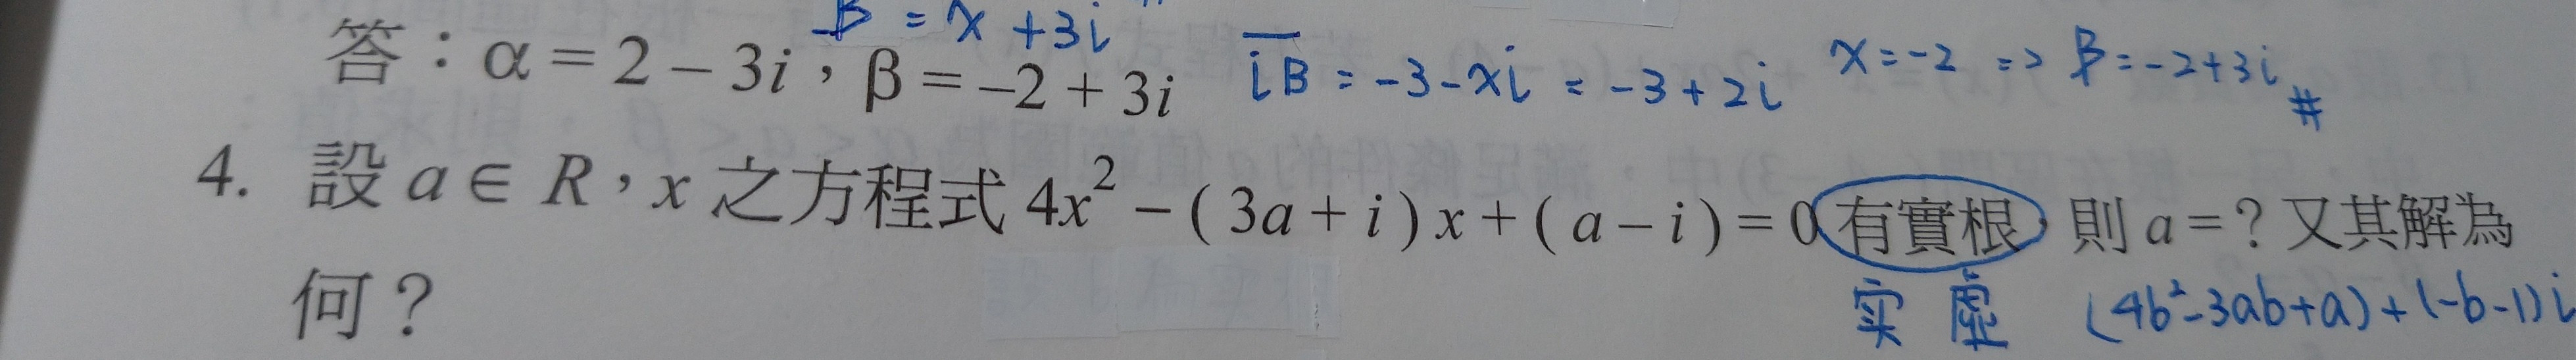 β = x + 3i
答：α = 2 − 3i，β = −2 + 3i
iβ = −3 − xi = −3 + 2i x = −2 => β = −2 + 3i #
4. 設 a ∈ R，x 之方程式 4x² − ( 3a + i ) x + ( a − i ) = 0 有實根，則 a = ? 又其解為
何？
实 虛 (4b² − 3ab + a) + (−b − 1) i